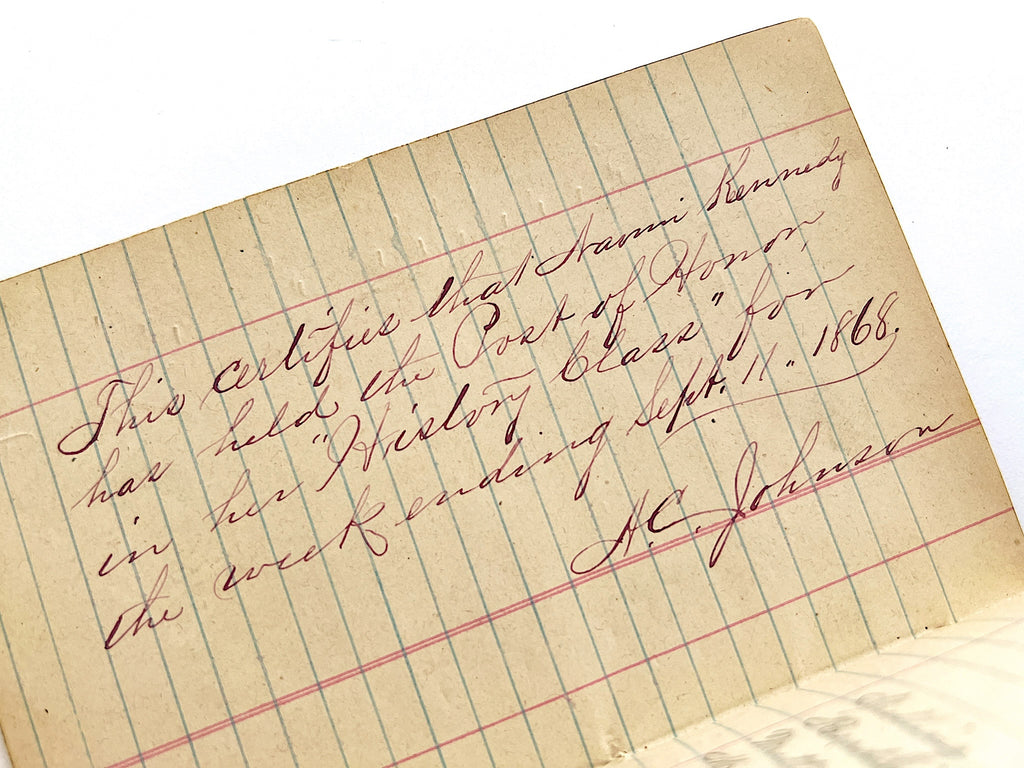 This certifies that Naomi Kennedy
has held the Post of Honor,
in her "History Class" for
the week ending Sept. 11.. 1868.
A.C. Johnson